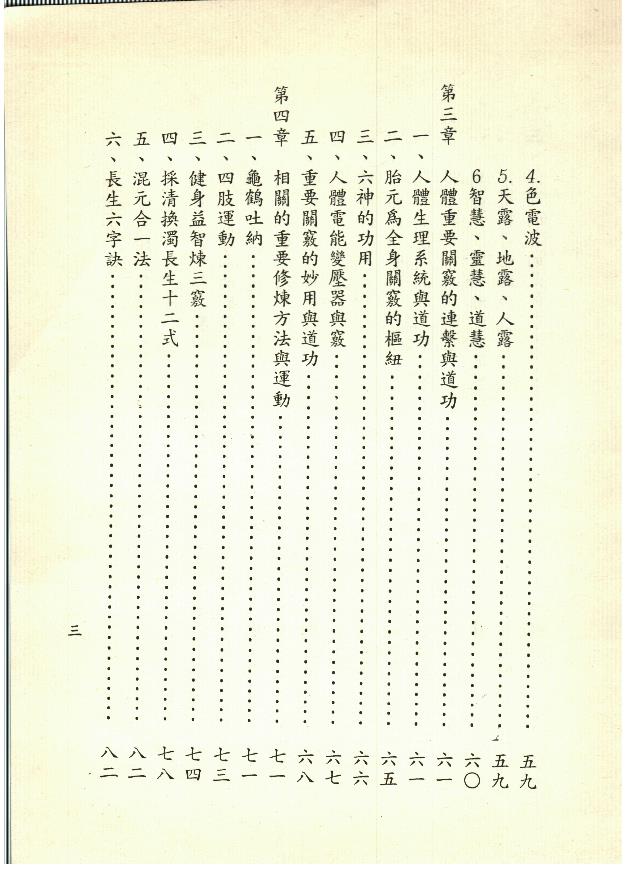 4.色電波⋯⋯⋯⋯⋯⋯⋯⋯⋯⋯五九
5.天露、地露、人露⋯⋯⋯⋯⋯⋯⋯⋯⋯⋯五九
6智慧、靈慧、道慧⋯⋯⋯⋯⋯⋯⋯⋯⋯⋯六〇
第三章 人體重要關竅的連繫與道功⋯⋯⋯⋯⋯⋯⋯⋯⋯⋯六一
一、人體生理系統與道功⋯⋯⋯⋯⋯⋯⋯⋯⋯⋯六一
二、胎元爲全身關竅的樞紐⋯⋯⋯⋯⋯⋯⋯⋯⋯⋯六五
三、六神的功用⋯⋯⋯⋯⋯⋯⋯⋯⋯⋯六六
四、人體電能變壓器與竅⋯⋯⋯⋯⋯⋯⋯⋯⋯⋯六七
五、重要關竅的妙用與道功⋯⋯⋯⋯⋯⋯⋯⋯⋯⋯六八
第四章 相關的重要修煉方法與運動⋯⋯⋯⋯⋯⋯⋯⋯⋯⋯七一
一、龜鶴吐納⋯⋯⋯⋯⋯⋯⋯⋯⋯⋯七一
二、四肢運動⋯⋯⋯⋯⋯⋯⋯⋯⋯⋯七三
三、健身益智煉三竅⋯⋯⋯⋯⋯⋯⋯⋯⋯⋯七四
四、採清換濁長生十二式⋯⋯⋯⋯⋯⋯⋯⋯⋯⋯七八
五、混元合一法⋯⋯⋯⋯⋯⋯⋯⋯⋯⋯八二
六、長生六字訣⋯⋯⋯⋯⋯⋯⋯⋯⋯⋯八二
三